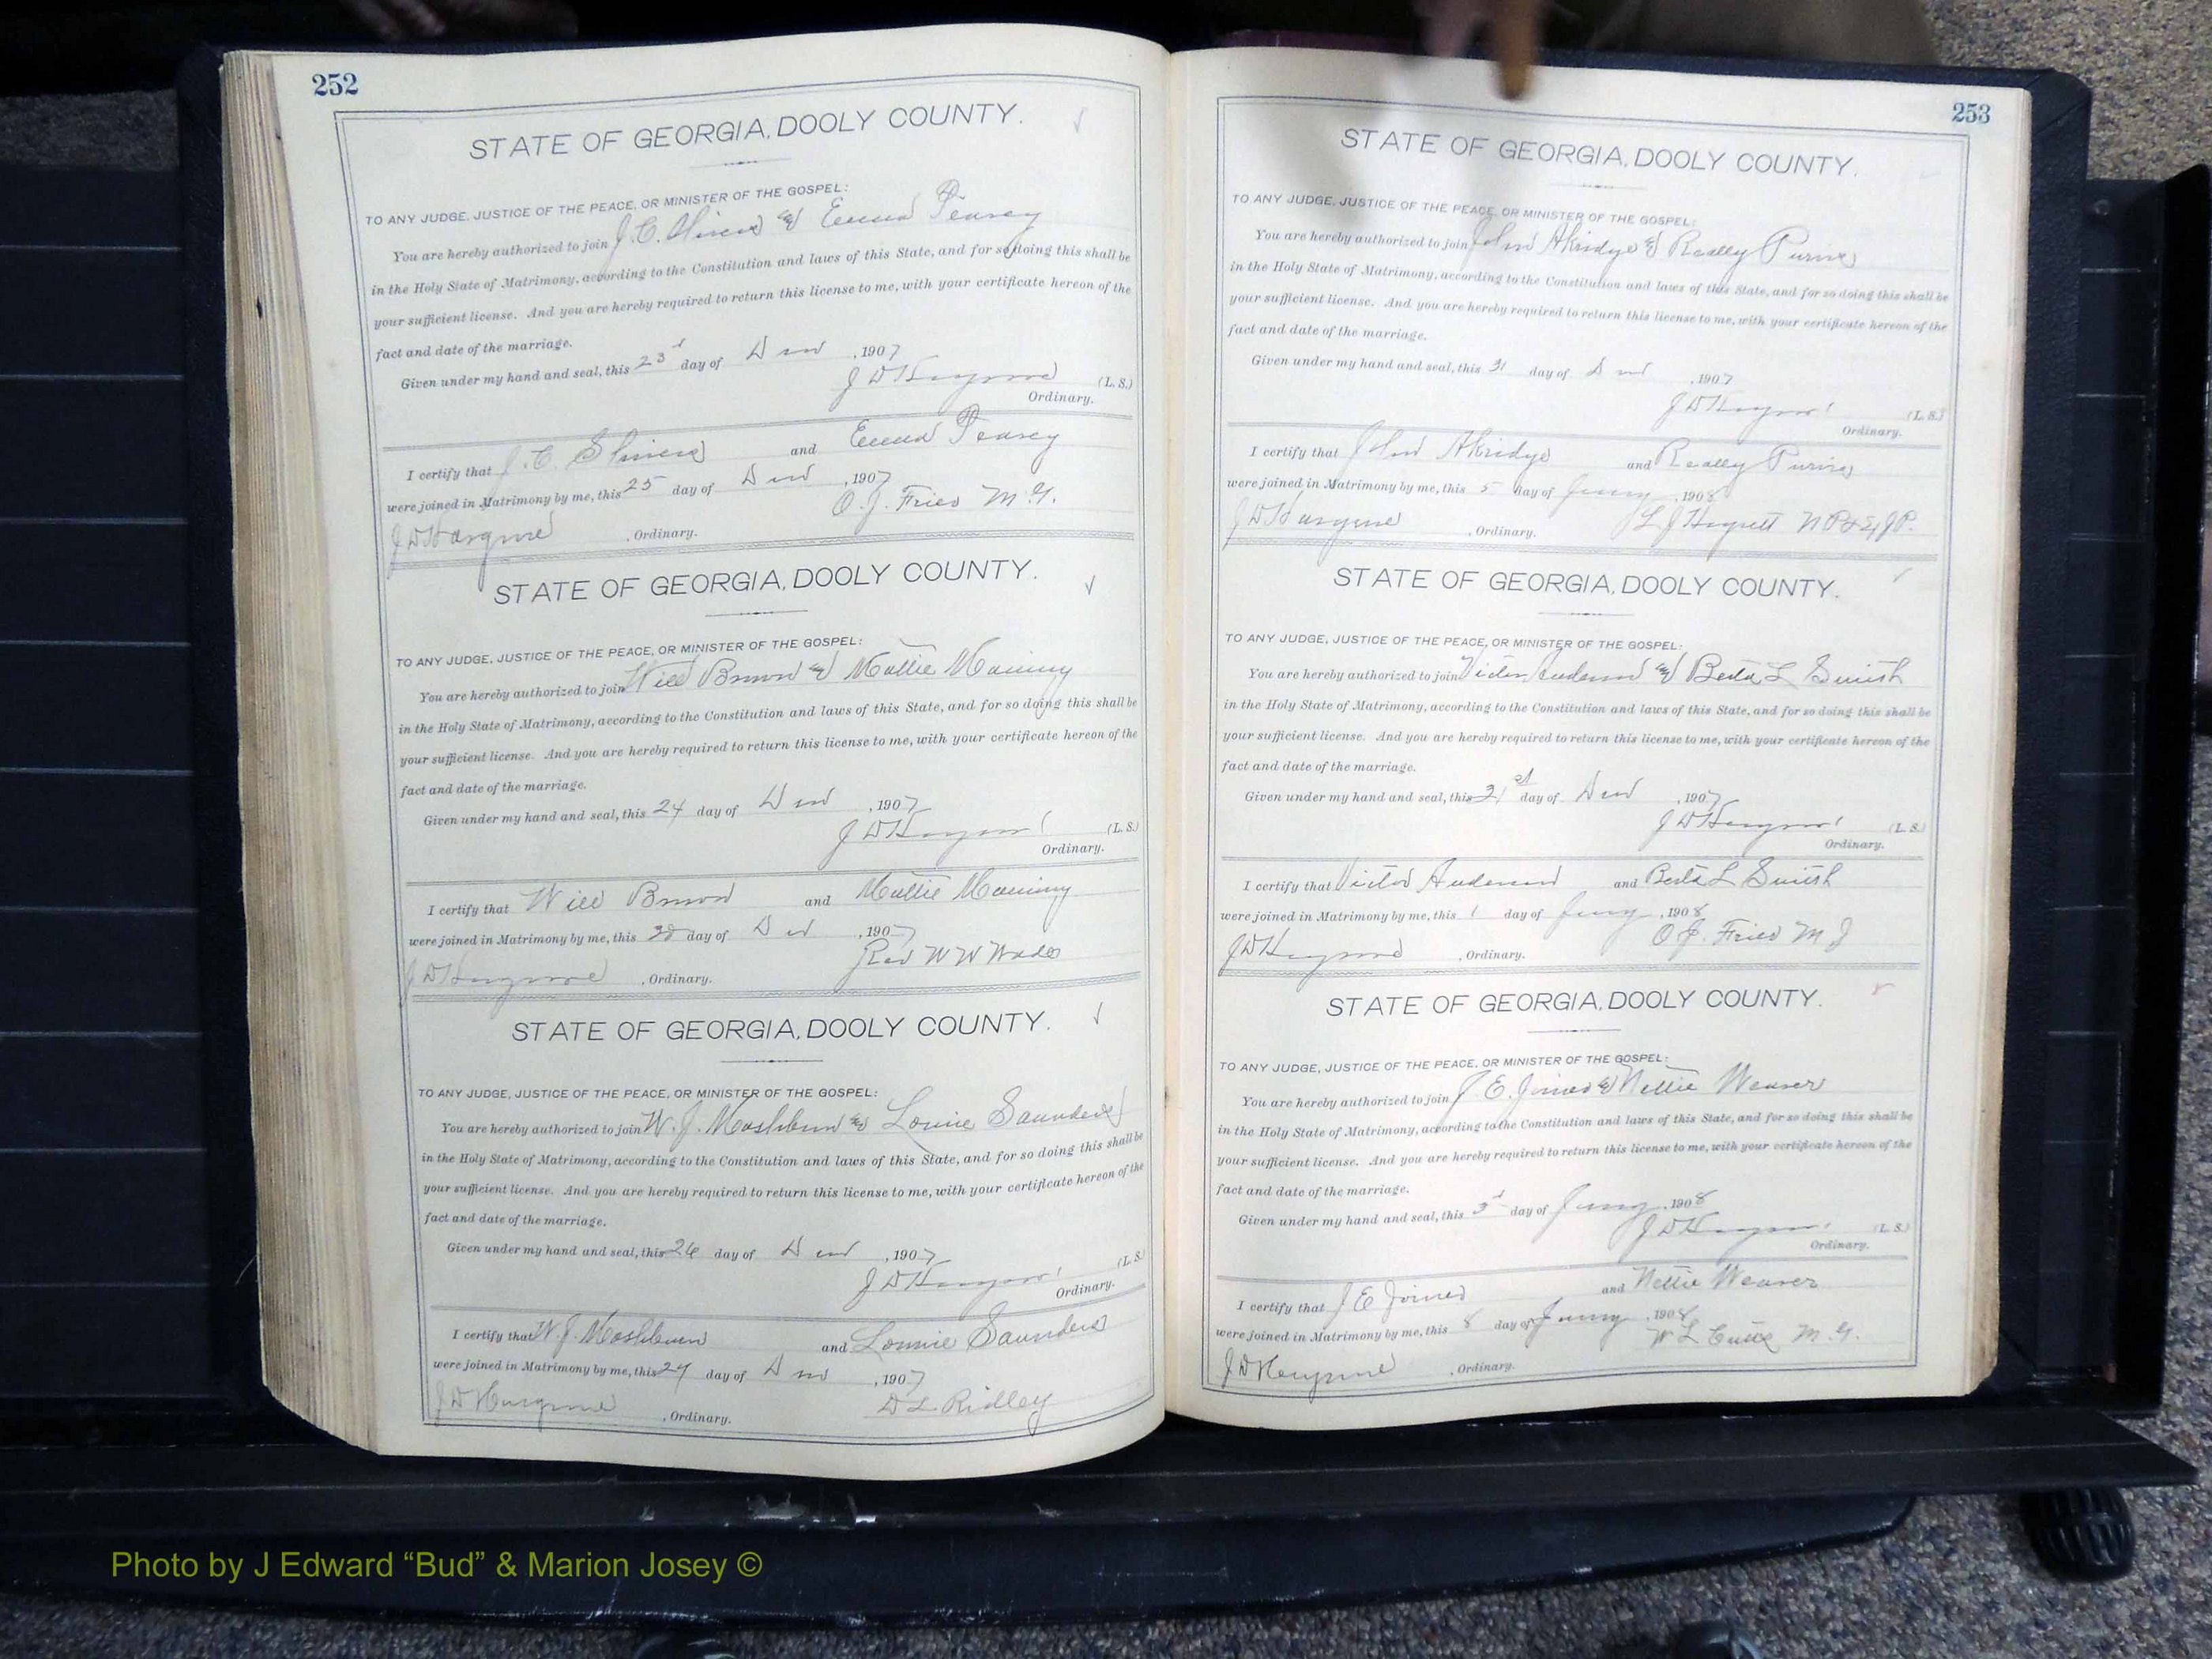 252
STATE OF GEORGIA, DOOLY COUNTY.
TO ANY JUDGE, JUSTICE OF THE PEACE, OR MINISTER OF THE GOSPEL:
You are hereby authorized to join J. C. & Emma
in the Holy State of Matrimony, according to the Constitution and laws of this State, and for so doing this shall be
your sufficient license. And you are hereby required to return this license to me, with your certificate hereon of the
fact and date of the marriage.
Given under my hand and seal, this 23d day of , 1907
J D (L. S.)
Ordinary.
I certify that J. C. and Emma
were joined in Matrimony by me, this 25 day of , 1907
O. J. M. G.
J D , Ordinary.
STATE OF GEORGIA, DOOLY COUNTY.
TO ANY JUDGE, JUSTICE OF THE PEACE, OR MINISTER OF THE GOSPEL:
You are hereby authorized to join Will Brown & Mattie
in the Holy State of Matrimony, according to the Constitution and laws of this State, and for so doing this shall be
your sufficient license. And you are hereby required to return this license to me, with your certificate hereon of the
fact and date of the marriage.
Given under my hand and seal, this 24 day of , 1907
J D (L. S.)
Ordinary.
I certify that Will Brown and Mattie
were joined in Matrimony by me, this day of , 1907
Rev W W
J D , Ordinary.
STATE OF GEORGIA, DOOLY COUNTY.
TO ANY JUDGE, JUSTICE OF THE PEACE, OR MINISTER OF THE GOSPEL:
You are hereby authorized to join W. J. Mashburn & Lonnie Saunders
in the Holy State of Matrimony, according to the Constitution and laws of this State, and for so doing this shall be
your sufficient license. And you are hereby required to return this license to me, with your certificate hereon of the
fact and date of the marriage.
Given under my hand and seal, this 26 day of , 1907
J D (L. S.)
Ordinary.
I certify that W. J. Mashburn and Lonnie Saunders
were joined in Matrimony by me, this day of , 1907
D L Ridley
J D , Ordinary.
253
STATE OF GEORGIA, DOOLY COUNTY.
TO ANY JUDGE, JUSTICE OF THE PEACE, OR MINISTER OF THE GOSPEL:
You are hereby authorized to join John Akridge &
in the Holy State of Matrimony, according to the Constitution and laws of this State, and for so doing this shall be
your sufficient license. And you are hereby required to return this license to me, with your certificate hereon of the
fact and date of the marriage.
Given under my hand and seal, this 31 day of , 1907
J D (L. S.)
Ordinary.
I certify that John Akridge and
were joined in Matrimony by me, this 5 day of , 1908
L J
J D , Ordinary.
STATE OF GEORGIA, DOOLY COUNTY.
TO ANY JUDGE, JUSTICE OF THE PEACE, OR MINISTER OF THE GOSPEL:
You are hereby authorized to join Victor Anderson & L Smith
in the Holy State of Matrimony, according to the Constitution and laws of this State, and for so doing this shall be
your sufficient license. And you are hereby required to return this license to me, with your certificate hereon of the
fact and date of the marriage.
Given under my hand and seal, this 31st day of , 1907
J D (L. S.)
Ordinary.
I certify that Victor Anderson and L Smith
were joined in Matrimony by me, this 1 day of , 1908
O J.
J D , Ordinary.
STATE OF GEORGIA, DOOLY COUNTY.
TO ANY JUDGE, JUSTICE OF THE PEACE, OR MINISTER OF THE GOSPEL:
You are hereby authorized to join J. E. Joiner & Nettie Weaver
in the Holy State of Matrimony, according to the Constitution and laws of this State, and for so doing this shall be
your sufficient license. And you are hereby required to return this license to me, with your certificate hereon of the
fact and date of the marriage.
Given under my hand and seal, this 3d day of , 1908
J D (L. S.)
Ordinary.
I certify that J E Joiner and Nettie Weaver
were joined in Matrimony by me, this 8 day of , 1908
W L M. G.
J D , Ordinary.
Photo by J Edward “Bud” & Marion Josey ©